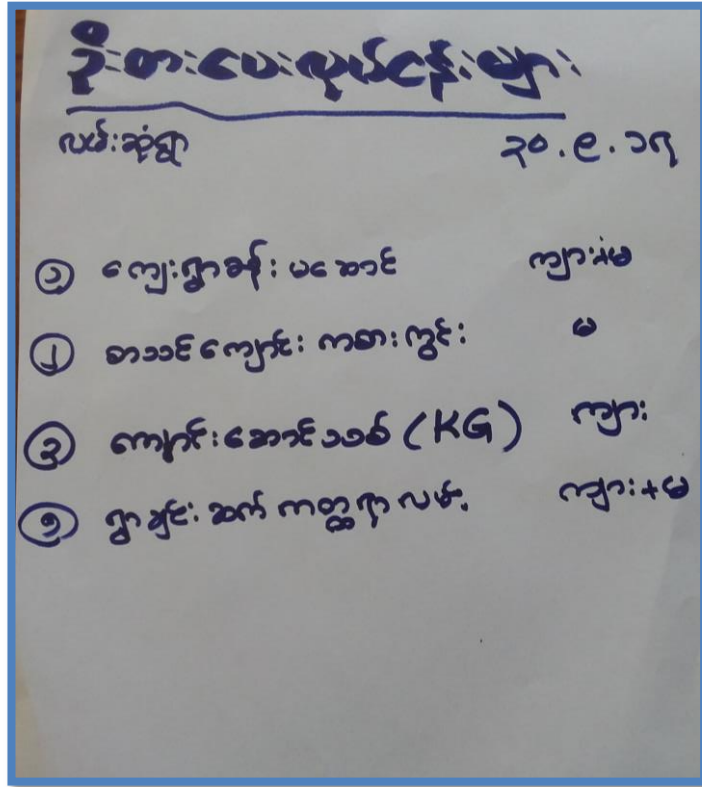 ဦးစားပေးလုပ်ငန်းများ
လမ်းဆုံရွာ ၃၀.၉.၁၇
၁ ကျေးရွာခန်းမဆောင် ကျား+မ
၂ စာသင်ကျောင်း ကစားကွင်း မ
၃ ကျောင်းဆောင်သစ် (KG) ကျား
၅ ရွာချင်းဆက် ကတ္တရာလမ်း ကျား+မ